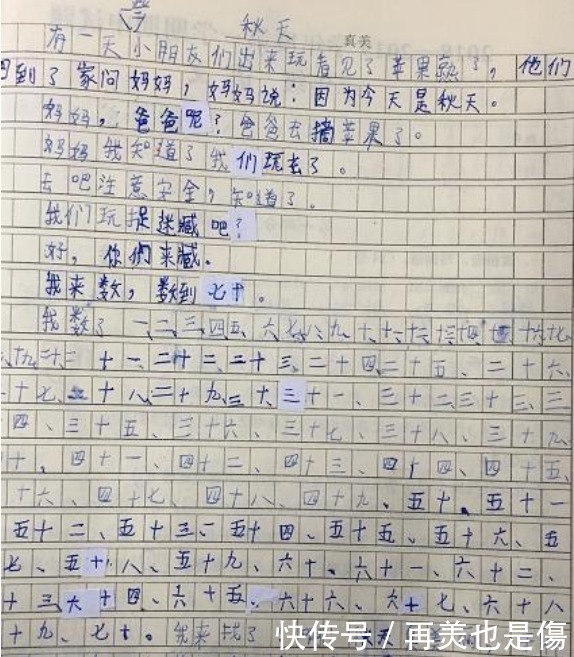 秋天
真美
有一天小朋友们出来玩看见了苹果熟了，他们
回到了家问妈妈，妈妈说：因为今天是秋天。
妈妈，爸爸呢？爸爸去摘苹果了。
妈妈我知道了我们玩去了。
去吧注意安全，知道了。
我们玩捉迷藏吧？
好，你们来藏。
我来数，数到七十。
我数了一、二、三、四、五、六、七、八、九、十、十一、十二、十三、十四、十五、十六、十七、
十九、二十、二十一、二十二、二十三、二十四、二十五、二十六、
二十七、二十八、二十九、三十、三十一、三十二、三十三、三
四、三十五、三十六、三十七、三十八、三十九、
十、四十一、四十二、四十三、四十四、四十五、
十六、四十七、四十八、四十九、五十、五十一
五十二、五十三、五十四、五十五、五十六、五
七、五十八、五十九、六十、六十一、六十二、
十三、六十四、六十五、六十六、六十七、六十八
十九、七十。我来找了
快传号 / 再美也是傷